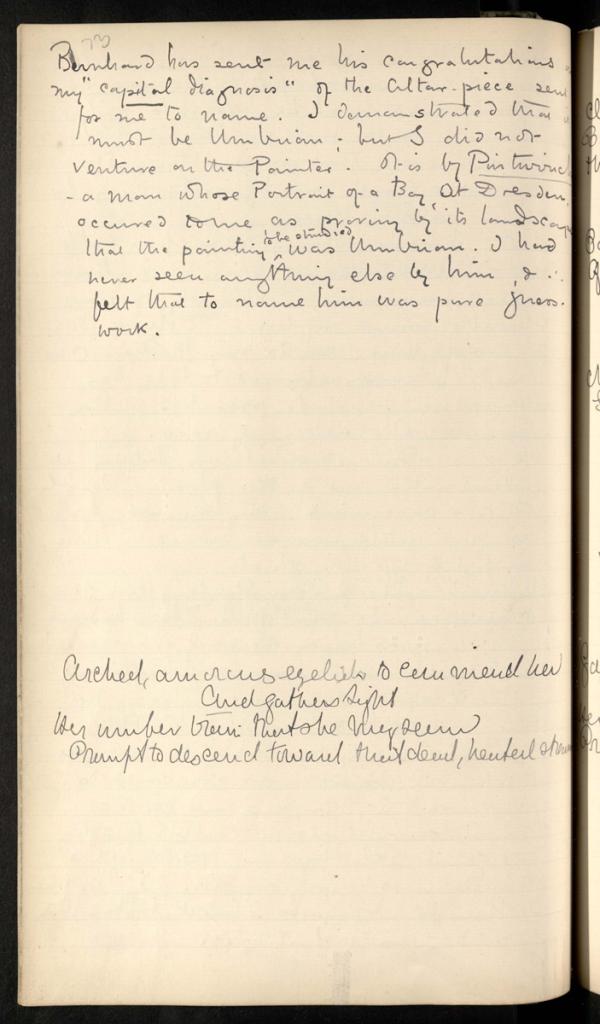 73
Bernhard has sent me his congratulations on
my "capital diagnosis" of the altar-piece sent
for me to name. I demonstrated that it
must be Umbrian; but I did not
venture on the Painter. It is by Pintwricc
- a man whose Portrait of a Boy, at Dresden,
occured to me as proving by its landscape
that the painting to be studied was Umbrian. I had
never seen anything else by him, & ∴
felt that to name him was pure guess-
work.
Arched, amorous eyelids to commend her
And gathers tight
Her umber train that she may seem
Prompt to descend toward that dead,